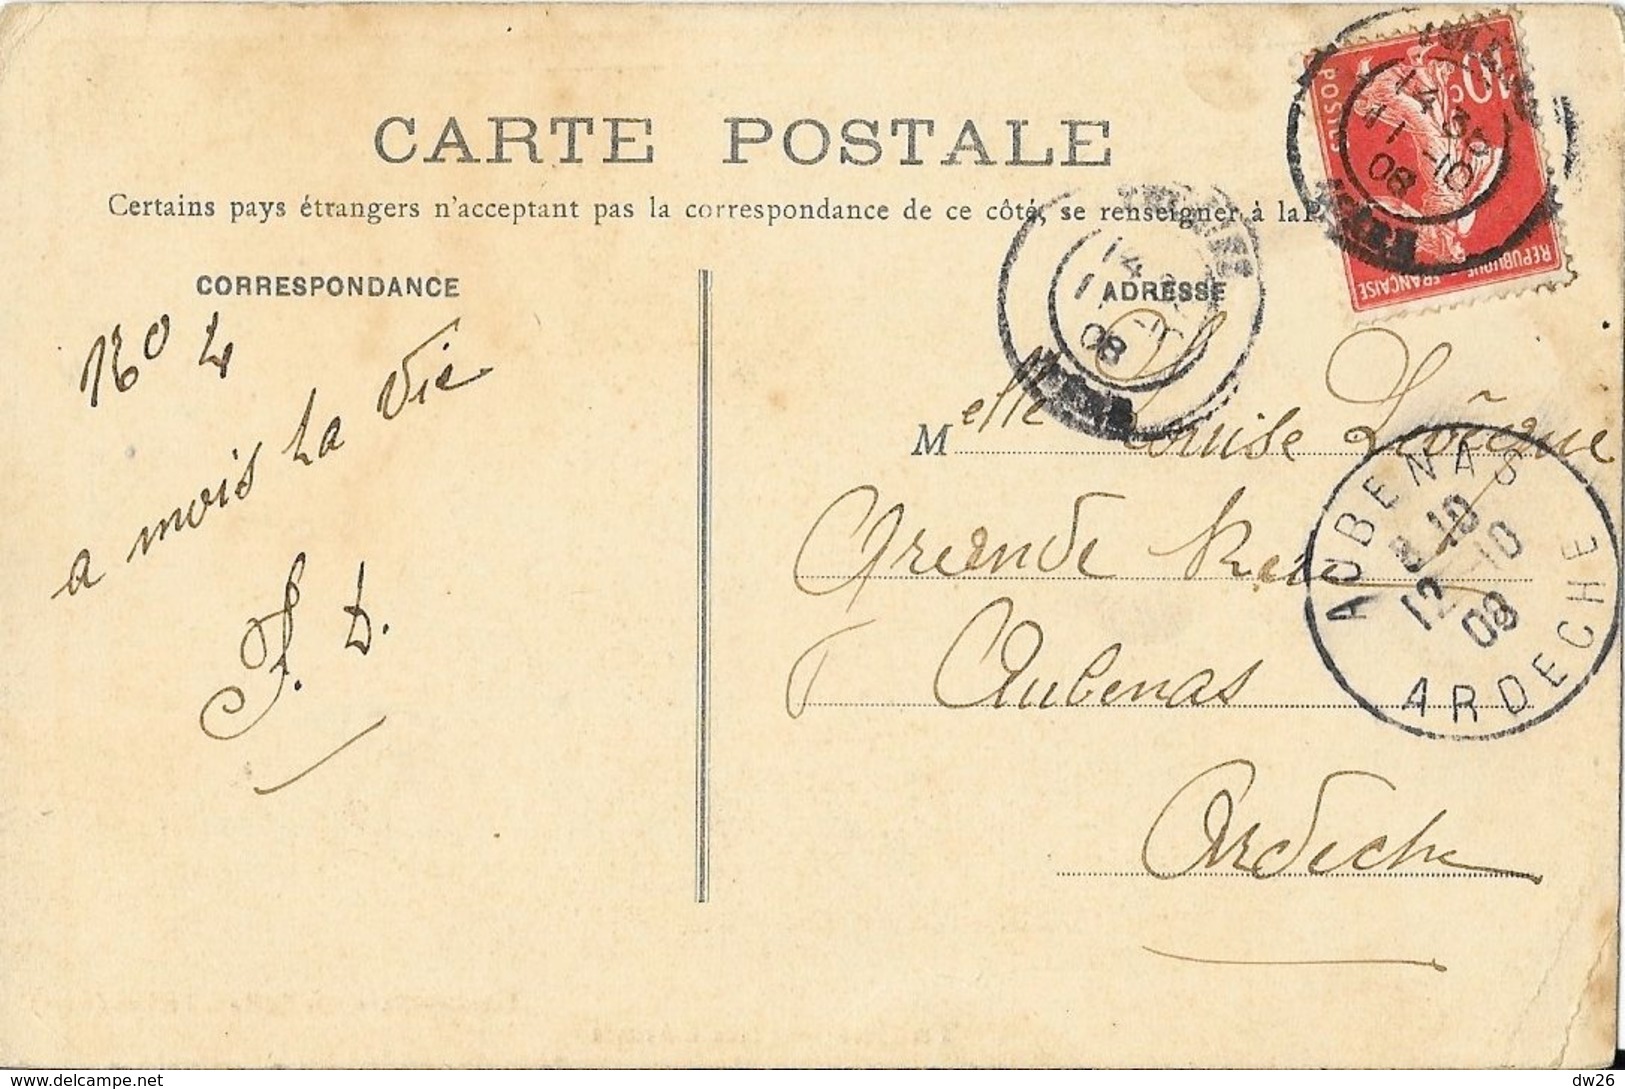 CARTE POSTALE
Certains pays étrangers n'acceptent pas la correspondance de ce côté, se renseigner à la P
CORRESPONDANCE
ADRESSE
No 4
a mois la vie
F. D.
Melle Louise
Grande Rue
Aubenas
Ardèche
10 c
POSTES
REPUBLIQUE FRANÇAISE
14
11 -10
08
14
08
AUBENAS
12 -10
08
ARDECHE
dw26